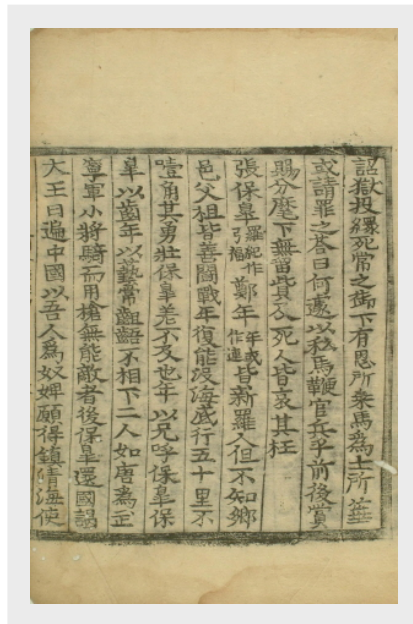 詔獄投繯死常之御下有恩所乗馬為士所箠
或請罪之荅曰何遽以私馬鞭官兵乎前後賞
賜分麾下無留貲及死人皆哀其枉
張保皐羅紀作弓福鄭年年或作連皆新羅人但不知鄉
邑父祖皆善鬪戰年復能没海底行五十里不
噎角其勇壯保皐差不及也年以兄呼保皐保
皐以齒年以藝常齟齬不相下二人如唐為武
寧軍小將騎而用槍無能敵者後保皐還國謁
大王曰遍中國以吾人為奴婢願得鎮清海使